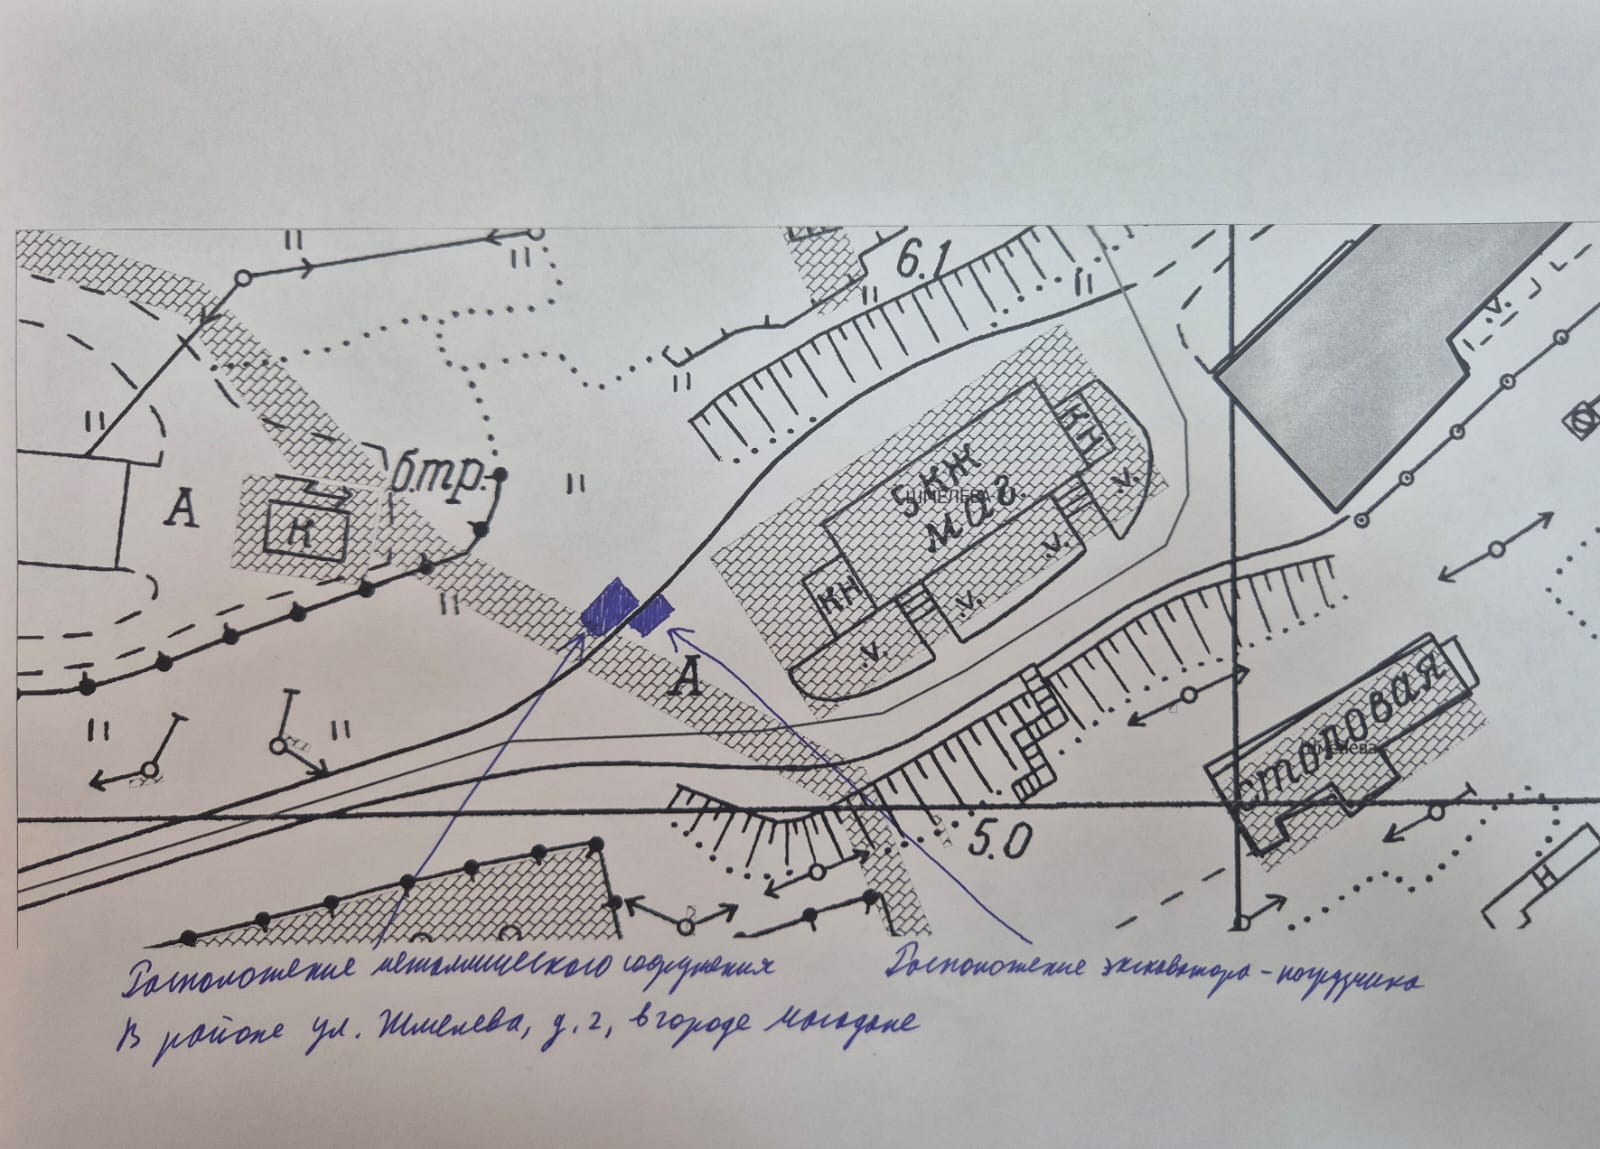 6.1
б.тр.
А
К
5КЖ
ШМЕЛЕВА
маг
КН
КН
А
столовая
Шмелева
5.0
Н
Расположение металлического сооружения
Расположение экскаватора-погрузчика
В районе ул. Шмелева, д. 2, в городе Магадане